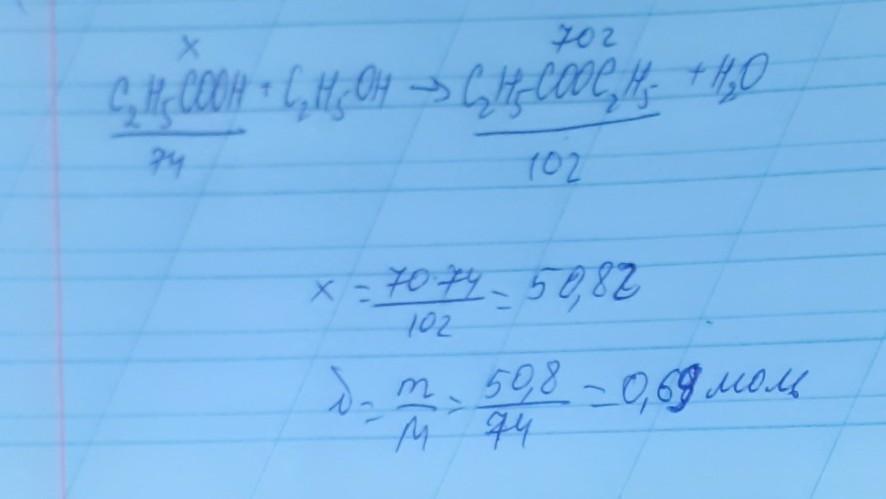 x 70г
C₂H₅COOH + C₂H₅OH → C₂H₅COOC₂H₅ + H₂O
74 102
x = 70·74/102 = 50,8г
ν = m/M = 50,8/74 = 0,69 моль